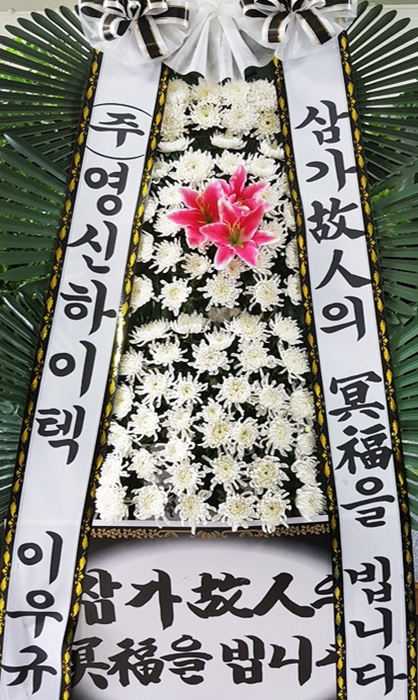 ㈜영신하이텍 이우규
삼가故人의 冥福을 빕니다
삼가故人의
冥福을빕니다